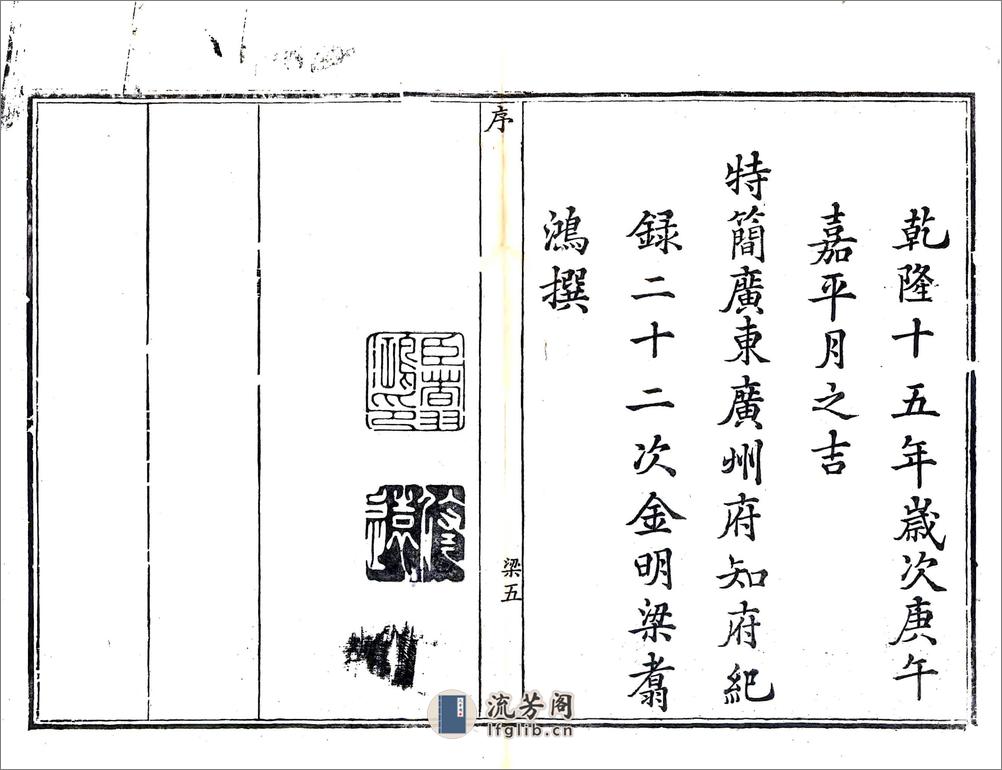 乾隆十五年歲次庚午
嘉平月之吉
特簡廣東廣州府知府紀
録二十二次金明梁翥
鴻撰
序
梁五
臣翥
鴻印
流芳阁
lfglib.cn